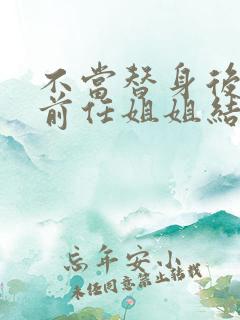 不當替身後
前任姐姐結
忘年安小
未经同意禁止转载